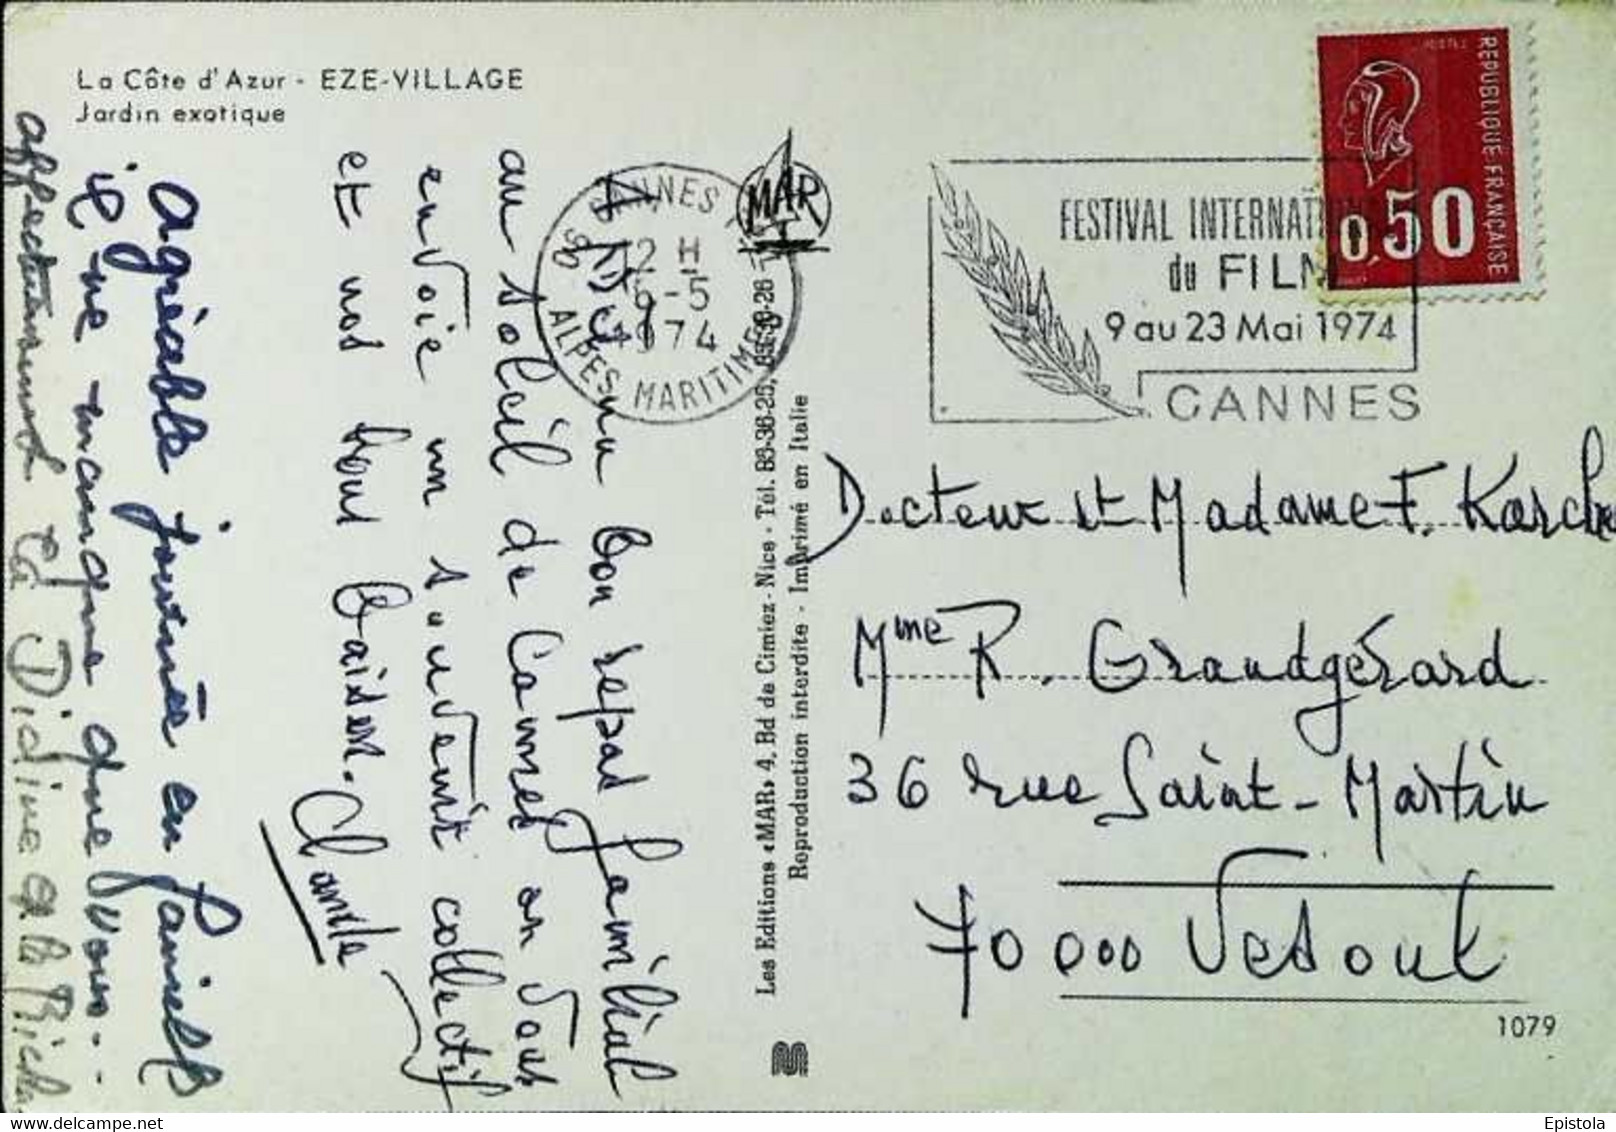 La Côte d'Azur - EZE-VILLAGE
Jardin exotique
A Menu bon repas familial
au soleil de Cannes on vous
envoie un souvenir collectif
et nos tout baiser.
Claude
Agréable journée en famille
il ne manque que vous...
affectueusement
Didine
CANNES
12 H
6-5
1974
06 ALPES MARITIMES
MAR
Les Editions «MAR» 4, Bd de Cimiez - Nice - Tél. 83-36-25, 83-36-26
Reproduction interdite - Imprimé en Italie
REPUBLIQUE FRANÇAISE
0,50
FESTIVAL INTERNATI
du FILM
9 au 23 Mai 1974
CANNES
Docteur et Madame F. Karcher
Mme R. Grandgérard
36 rue Saint-Martin
70000 Vesoul
1079
Epistola